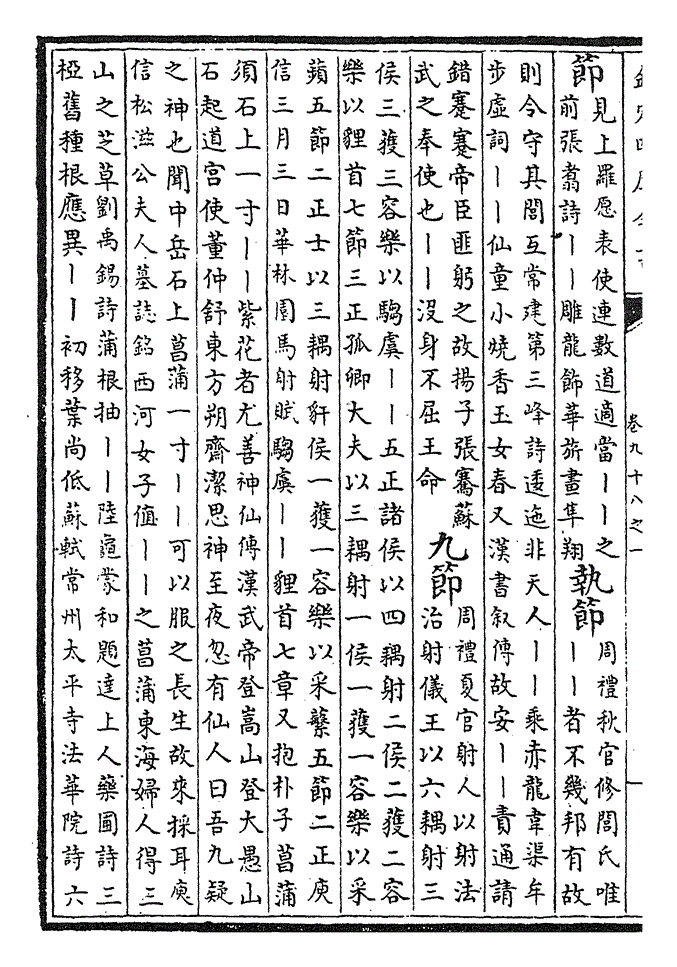 卷九十八之一
節
見上羅愿表使連數道適當丨丨之
前張翥詩丨丨雕龍飾華旂畫隼翔
執節
周禮秋官修閭氏唯
丨丨者不幾邦有故
則令守其閭互常建第三峰詩逶迤非天人丨丨乘赤龍韋渠牟
步虛詞丨丨仙童小燒香玉女春又漢書敘傳故安丨丨責通請
錯蹇蹇帝臣匪躬之故揚子張騫蘇
武之奉使也丨丨沒身不屈王命
九節
周禮夏官射人以射法
治射儀王以六耦射三
侯三獲三容樂以騶虞丨丨五正諸侯以四耦射二侯二獲二容
樂以貍首七節三正孤卿大夫以三耦射一侯一獲一容樂以采
蘋五節二正士以三耦射豻侯一獲一容樂以采蘩五節二正庾
信三月三日華林園馬射賦騶虞丨丨貍首七章又抱朴子菖蒲
須石上一寸丨丨紫花者尤善神仙傳漢武帝登嵩山登大愚山
石起道宮使董仲舒東方朔齋潔思神至夜忽有仙人曰吾九疑
之神也聞中岳石上菖蒲一寸丨丨可以服之長生故來採耳庾
信松滋公夫人墓誌銘西河女子值丨丨之菖蒲東海婦人得三
山之芝草劉禹錫詩蒲根抽丨丨陸龜蒙和題達上人藥圃詩三
椏舊種根應異丨丨初移葉尚低蘇軾常州太平寺法華院詩六